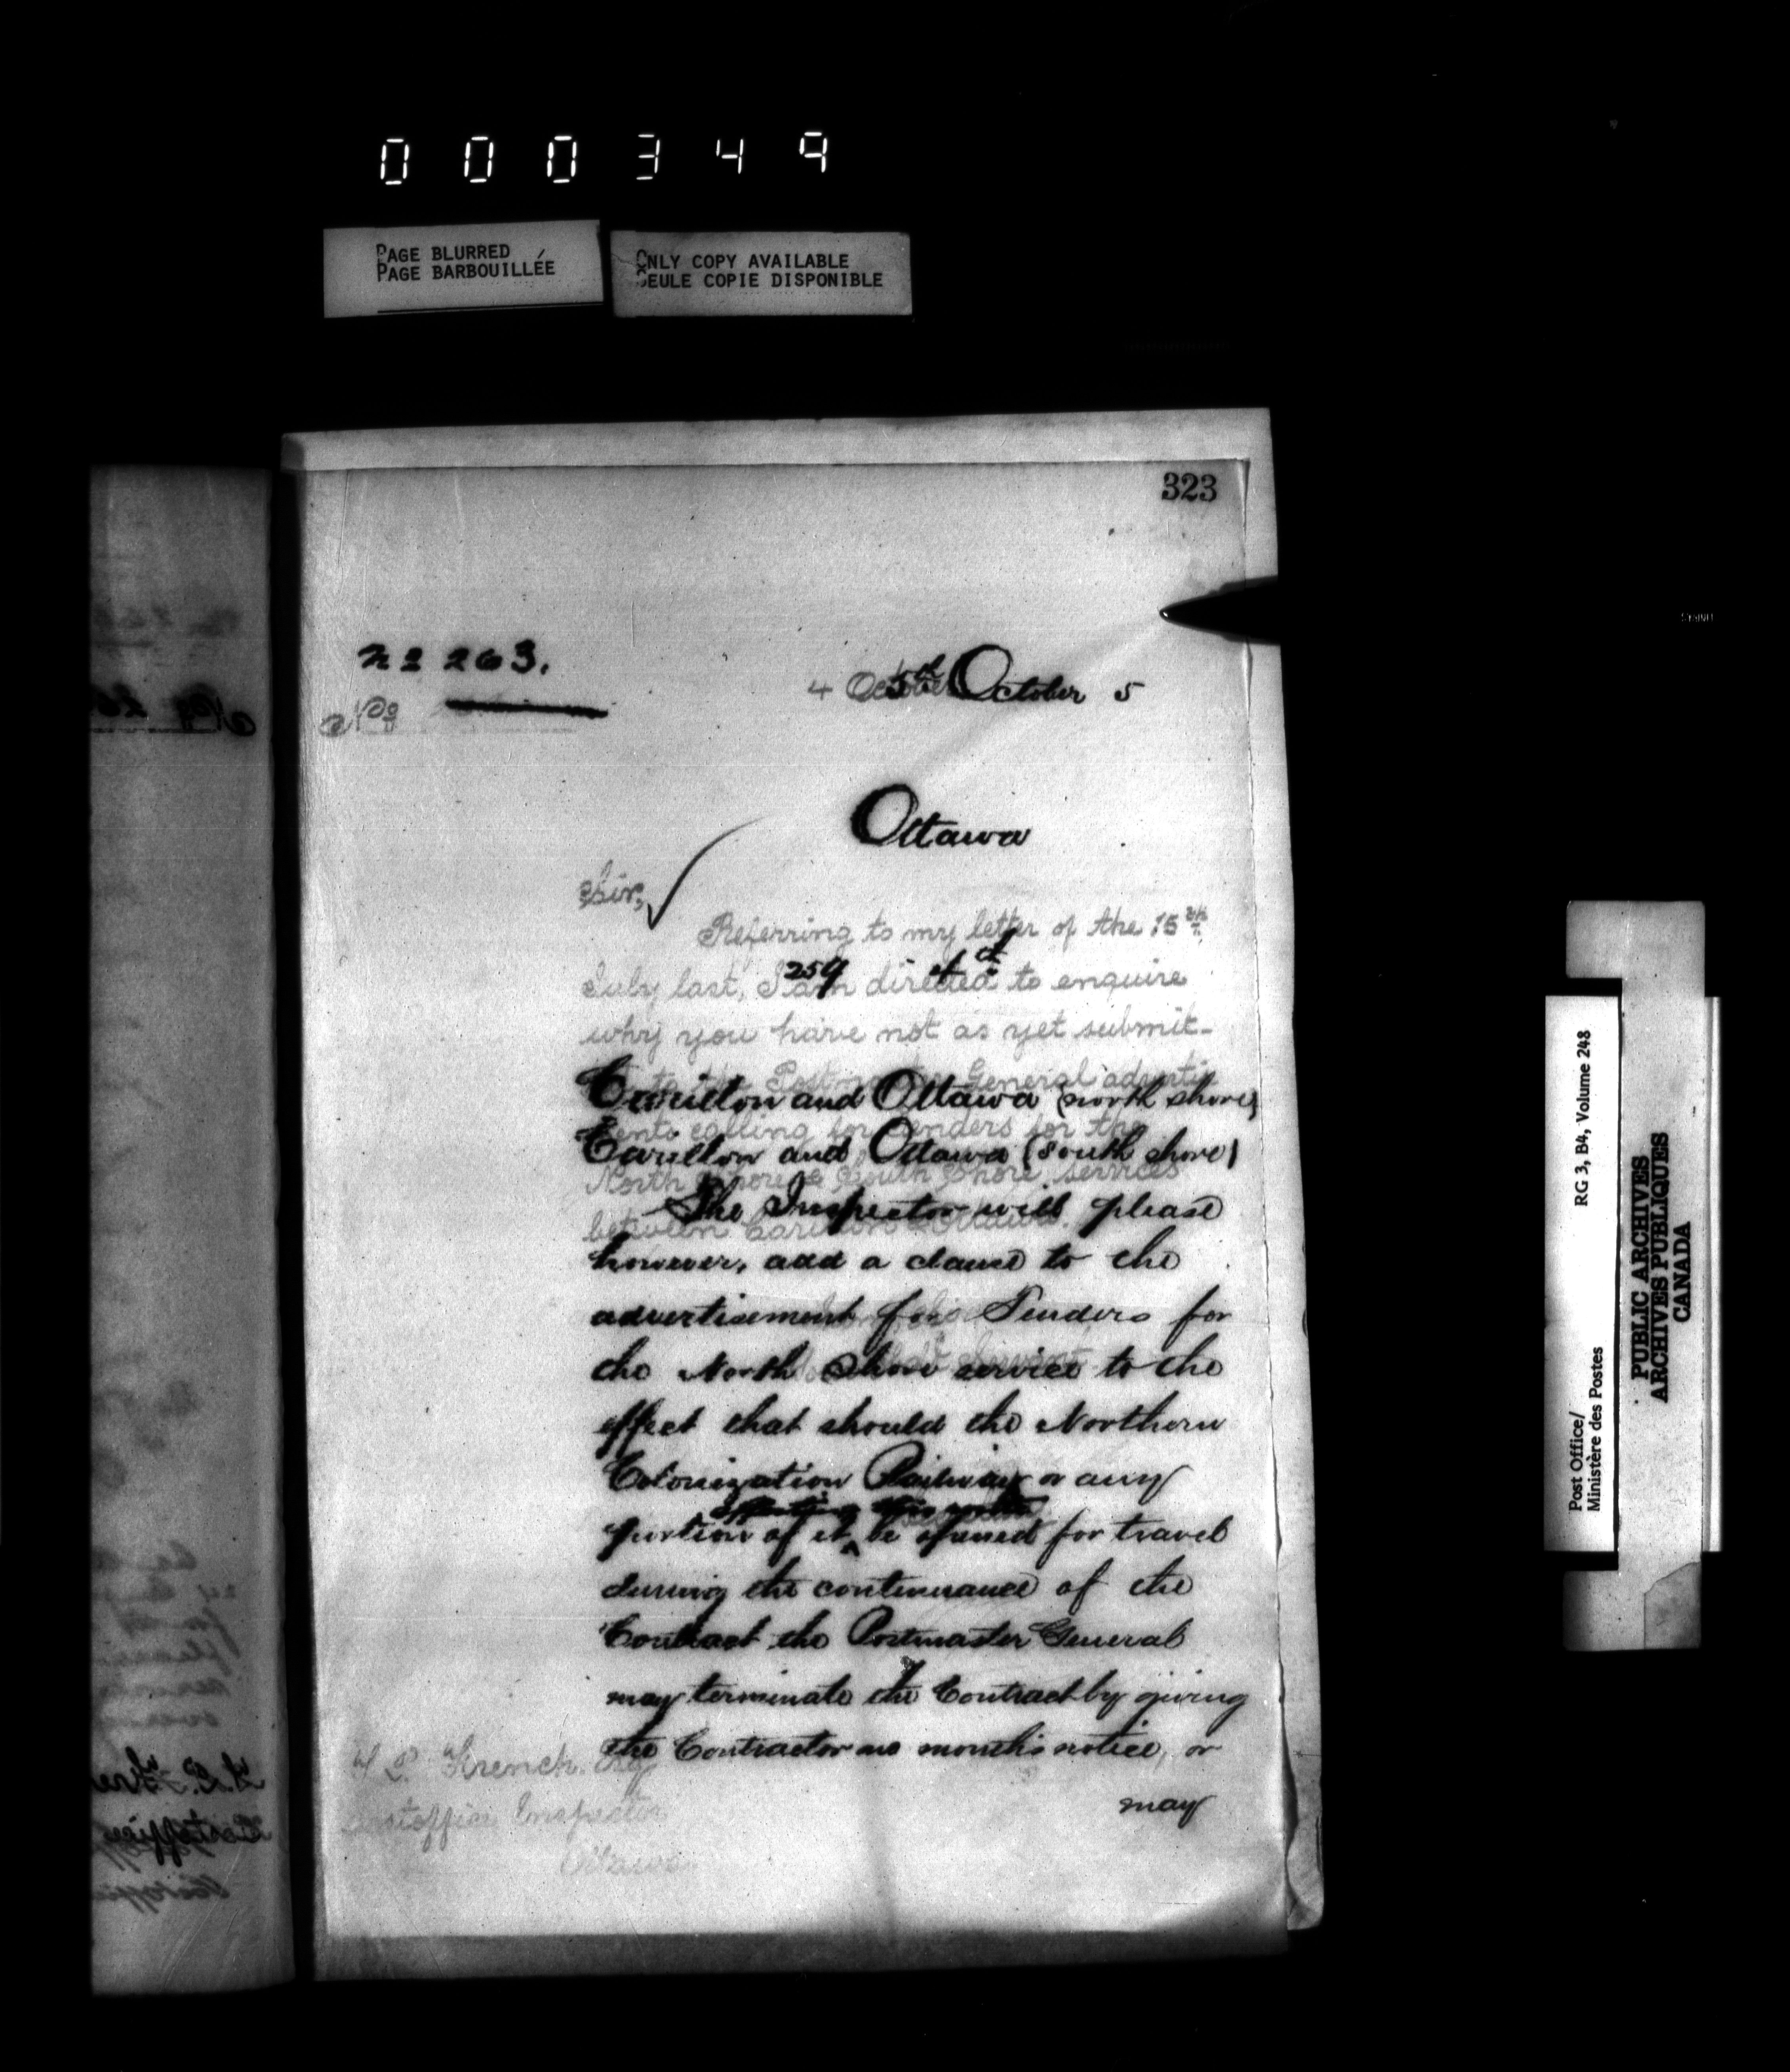 000349
PAGE BLURRED
PAGE BARBOUILLÉE
ONLY COPY AVAILABLE
SEULE COPIE DISPONIBLE
323
No 263.
No
4 October
5th October 5
Ottawa
Sir,
Referring to my letter of the 15th
July last, I am directed to enquire
259
why you have not as yet submit-
to the Post General
Carillon and Ottawa (north shore)
calling for tenders for the
Carillon and Ottawa (south shore)
North Shore & South Shore services
The Inspector will please
between Carillon
however, add a clause to the
advertisement for Tenders for
the North Shore service to the
effect that should the Northern
Colonization Railway or any
portion of it be opened for travel
during the continuance of the
Contract the Postmaster General
may terminate the Contract by giving
the Contractor one month's notice, or
may
French. Esq
Postoffice Inspector
Ottawa
Post Office/
Ministère des Postes
RG 3, B4, Volume 248
PUBLIC ARCHIVES
ARCHIVES PUBLIQUES
CANADA